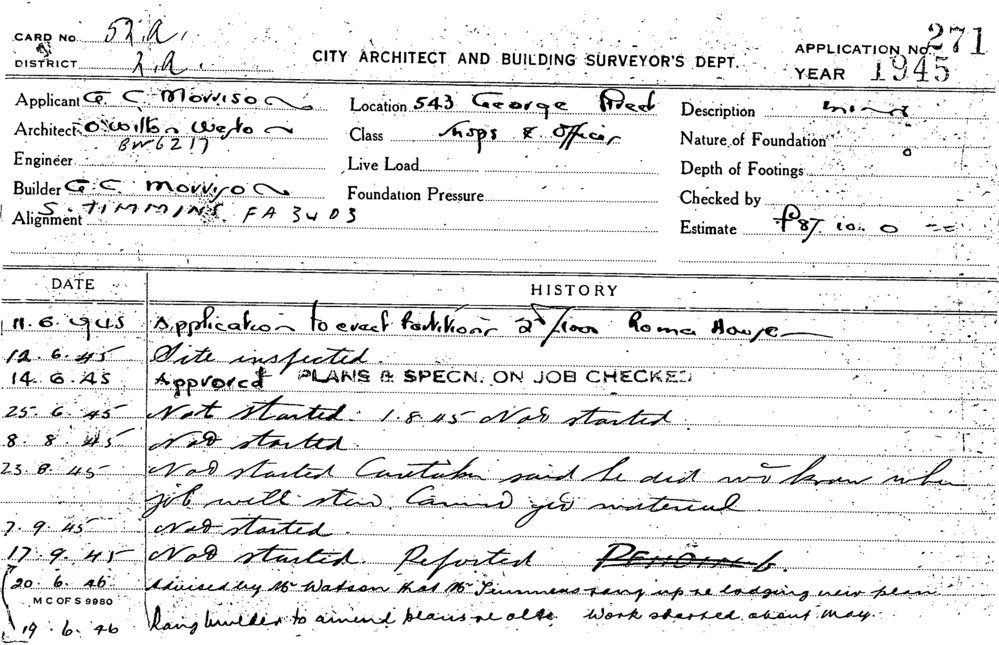 CARD No. 52.A.
DISTRICT 2.A.
CITY ARCHITECT AND BUILDING SURVEYOR'S DEPT.
APPLICATION No. 271
YEAR 1945
Applicant G C Morrison
Location 543 George Street
Description
Architect O. Wilton Weston
BW6217
Class Shops & Offices
Nature of Foundation
Engineer
Live Load
Depth of Footings
Builder G. C. Morrison
Foundation Pressure
Checked by
S. TIMMINS. FA 3403
Alignment
Estimate £87. 10. 0
DATE
HISTORY
11. 6. 1945 Application to erect Partitions 2nd floor Roma House
12. 6. 45 Site inspected.
14. 6. 45 Approved PLANS & SPECN. ON JOB CHECKED
25. 6. 45 Not started. 1. 8 45 Not started
8. 8. 45 Not started.
23. 8. 45 Not started Caretaker said he did not know when
job will start. Cannot get material.
7. 9. 45 Not started.
17. 9. 45 Not started. Reported PENDING.
20. 6. 46 Advised by Mr Watson that Mr Timmins rang up re lodging new plan.
M C OF S 9980
19. 6. 46 Rang builder to amend plans re alts. Work started about May.